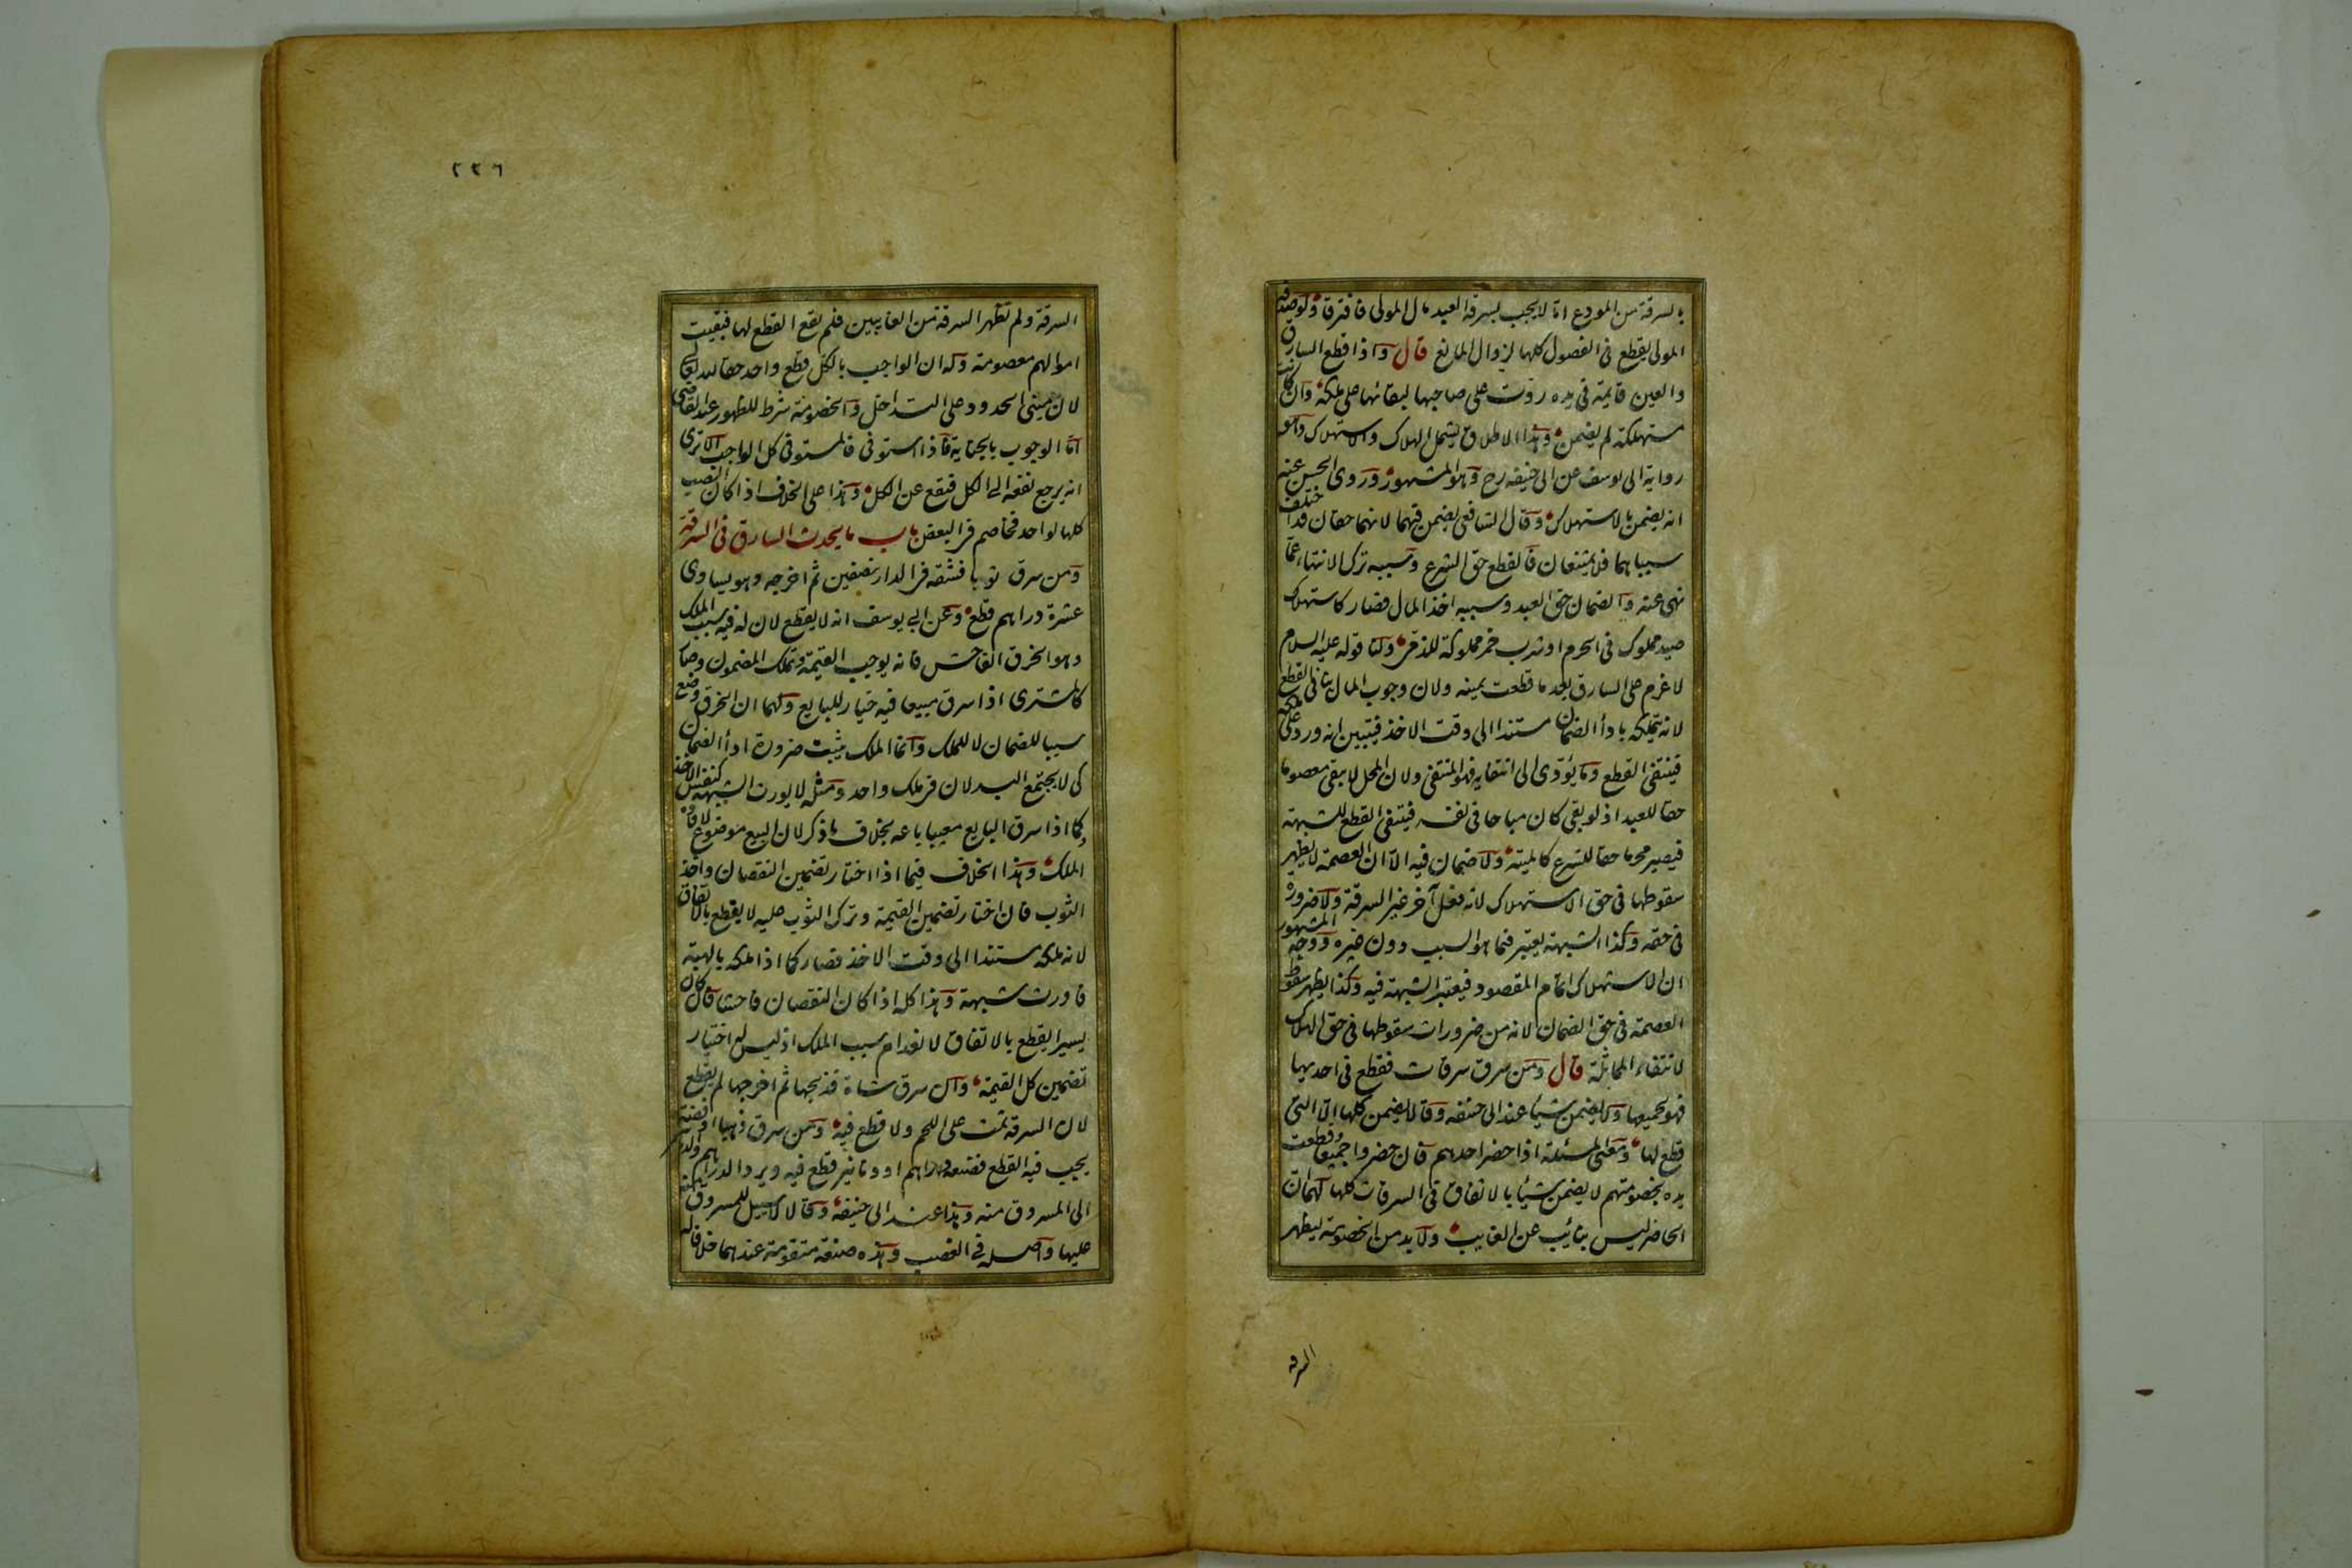 بالسرقة من المودع اما لا يجب بسرقة العبد مال المولى فافترقا ولو صدقه
المولى يقطع فى الفصول كلها لزوال المانع قال واذا قطع السارق
والعين قايمة فى يده ردت على صاحبها لبقائها على ملكه وان كانت
مستهلكة لم يضمن وهذا الاطلاق يشمل الهلاك والاستهلاك وهو
رواية ابى يوسف عن ابى حنيفه رح وهو المشهور وروى الحسن عنه
انه يضمن بالاستهلاك وقال الشافعى يضمن فيهما لانهما حقان قد اختلف
سبباهما فلا يمتنعان فالقطع حق الشرع وسببه ترك الانتهاء عما
نهى عنه والضمان حق العبد وسببه اخذ المال فصار كاستهلاك
صيد مملوك فى الحرم او شرب خمر مملوكة للذمى ولنا قوله عليه السلام
لا غرم على السارق بعد ما قطعت يمينه ولان وجوب المال ينافى القطع
لانه يتملكه بادأ الضمان مستندا الى وقت الاخذ فيتبين انه ورد على ملكه
فينتفى القطع وما يؤدى الى انتفايه فهو المنتفى ولان المحل لا يبقى معصوما
حقا للعبد اذ لو بقى كان مباحا فى نفسه فينتفى القطع للشبهة
فيصير محرما حقا للشرع كالميتة ولا ضمان فيه الا ان العصمة لا يظهر
سقوطها فى حق الاستهلاك لانه فعل آخر غير السرقة ولا ضرورة
فى حقه وكذا الشبهة يعتبر فيما هو السبب دون غيره ووجه المشهور
ان الاستهلاك اتمام المقصود فيعتبر الشبهة فيه وكذا يظهر سقوط
العصمة فى حق الضمان لانه من ضرورات سقوطها فى حق الهلاك
لانتفاء المماثلة قال ومن سرق سرقات فقطع فى احديها
فهو لجميعها ولا يضمن شيئا عند ابى حنيفه وقالا يضمن كلها الا التى
قطع لها ومعنى المسئلة اذا حضر احدهم فان حضروا جميعا وقطعت
يده بخصومتهم لا يضمن شيئا بالاتفاق فى السرقات كلها لهما ان
الحاضر ليس بنائب عن الغايب ولا بد من الخصومة ليظهر
السرقة
٢٢٦
السرقة ولم تظهر السرقة من الغايبين فلم يقع القطع لها فبقيت
اموالهم معصومة وله ان الواجب بالكل قطع واحد حقا لله تعالى
لان مبنى الحدود على التداخل والخصومة شرط للظهور عند القاضى
اما الوجوب بالجناية فاذا استوفى فالمستوفى كل الواجب الا ترى
انه يرجع نفعه الى الكل فيقع عن الكل وهذا على الخلاف اذا كان النصب
كلها لواحد فخاصم فى البعض باب ما يحدث السارق فى السرقة
ومن سرق ثوبا فشقه فى الدار بنصفين ثم اخرجه وهو يساوى
عشرة دراهم قطع وعن ابى يوسف انه لا يقطع لان له فيه سبب الملك
وهو الخرق الفاحش فانه يوجب القيمة وتملك المضمون وصار
كالمشترى اذا سرق مبيعا فيه خيار للبايع ولهما ان الخرق وضع
سببا للضمان لا للملك وانما الملك يثبت ضرورة ادأ الضمان
كى لا يجتمع البدلان فى ملك واحد ومثله لا يورث الشبهة كنفس الاخذ
وكما اذا سرق البايع معيبا باعه بخلاف ما ذكر لان البيع موضوع لافادة
الملك وهذا الخلاف فيما اذا اختار تضمين النقصان واخذ
الثوب فان اختار تضمين القيمة وترك الثوب عليه لا يقطع بالاتفاق
لانه ملكه مستندا الى وقت الاخذ فصار كما اذا ملكه بالهبة
فاورث شبهة وهذا كله اذا كان النقصان فاحشا فان كان
يسيرا يقطع بالاتفاق لانعدام سبب الملك اذ ليس له اختيار
تضمين كل القيمة وان سرق شاة فذبحها ثم اخرجها لم يقطع
لان السرقة تمت على اللحم ولا قطع فيه ومن سرق ذهبا او فضة
يجب فيه القطع فصنعه دراهم او دنانير قطع فيه ويرد الدراهم والدنانير
الى المسروق منه وهذا عند ابى حنيفه وقالا لا سبيل للمسروق منه
عليها واصله فى الغصب وهذه صنعة متقومة عندهما خلافا له